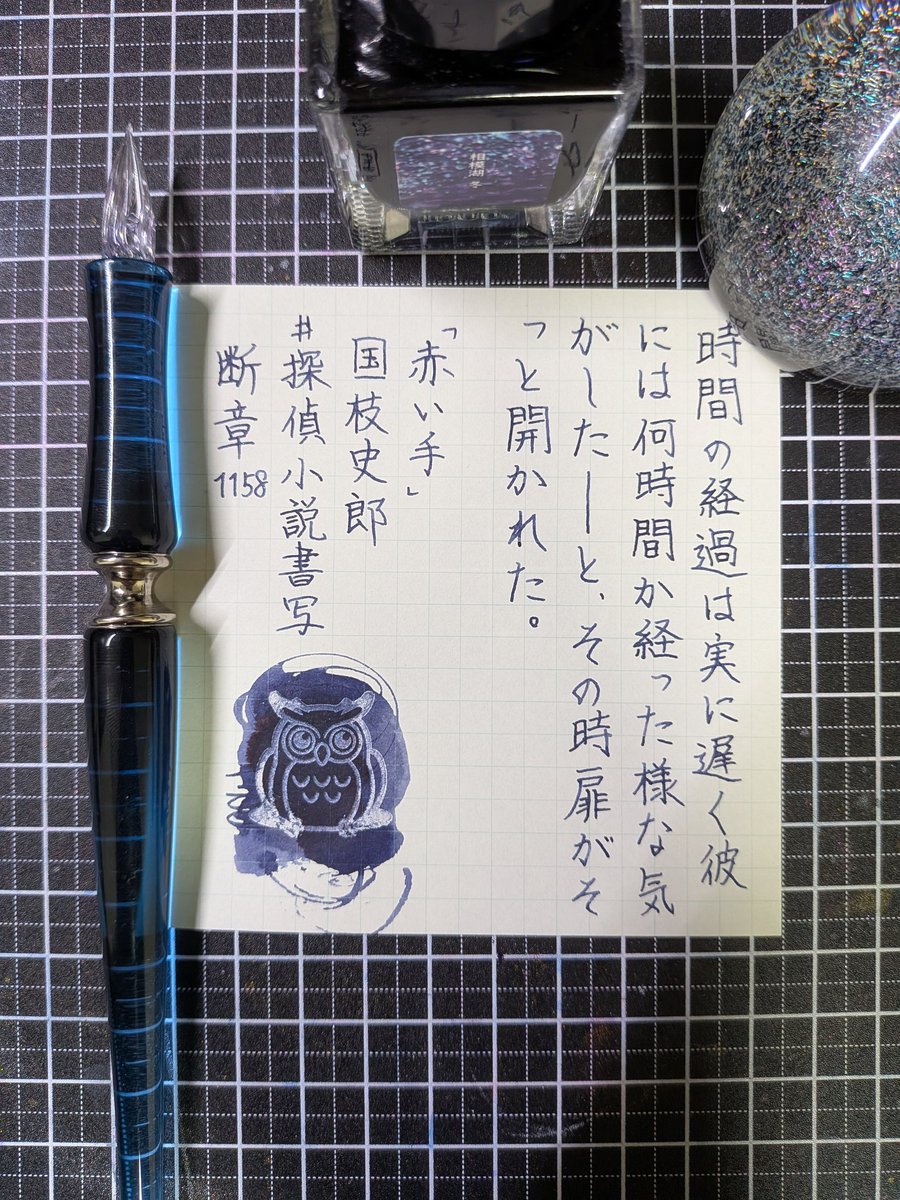 時間の経過は実に遅く彼
には何時間か経った様な気
がした――と、その時扉がそ
っと開かれた。
「赤い手」
国枝史郎
#探偵小説書写
断章1158
相模湖 冬